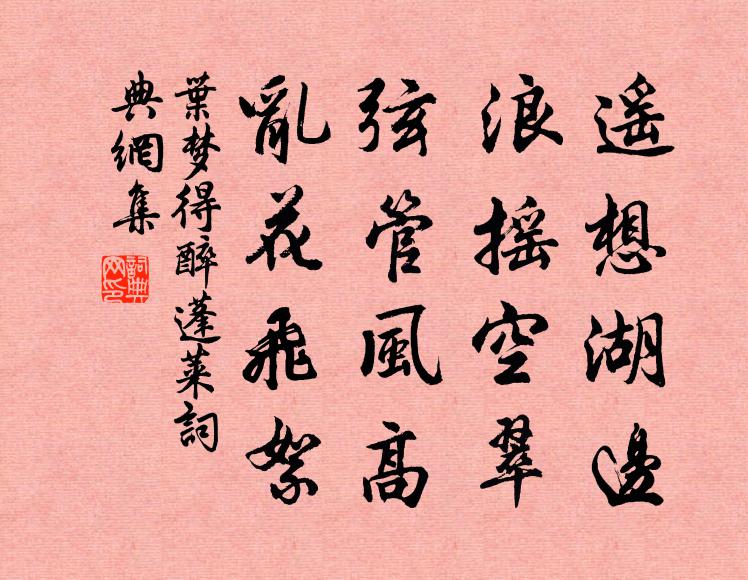 遥想湖邊
浪揺空翠
弦管風高
亂花飛絮
葉梦得醉蓬莱詞
典網集
詞典網印